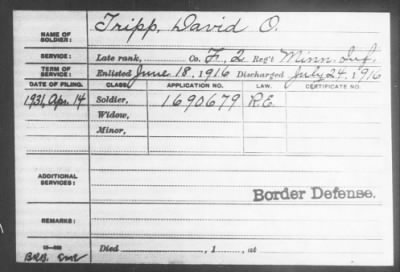 NAME OF SOLDIER: Tripp, David O.
SERVICE: Late rank, Co. F, 2 Reg't Minn. Inf.
TERM OF SERVICE: Enlisted June 18, 1916 Discharged July 24, 1916
DATE OF FILING. CLASS. APPLICATION NO. LAW. CERTIFICATE NO.
1931, Apr. 14 Soldier, 1690679 R.E.
Widow,
Minor,
ADDITIONAL SERVICES:
Border Defense.
REMARKS:
Died , 1 , at